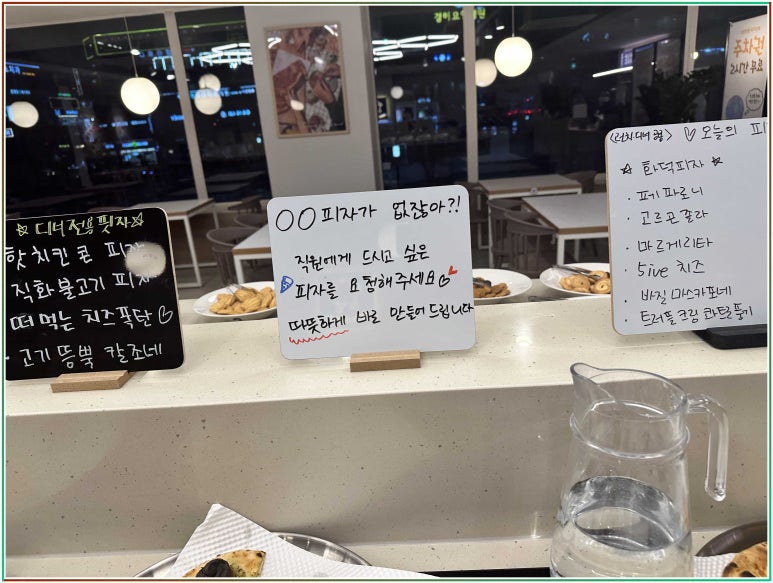 ☆디너전용 핏자☆
핫치킨 콘 피자
직화불고기 피자
떠 먹는 치즈폭탄♡
· 고기 듬뿍 칼조네
○○피자가 없잖아?!
직원에게 드시고 싶은
피자를 요청해주세요♡
따뜻하게 바로 만들어드립니다
<런치·디너 공통> ♡ 오늘의 피
☆ 화덕피자 ☆
· 페퍼로니
· 고르곤졸라
· 마르게리타
· 5ive 치즈
· 바질 마스카포네
· 트러플크림 콰트로풍기
주차권
2시간 무료